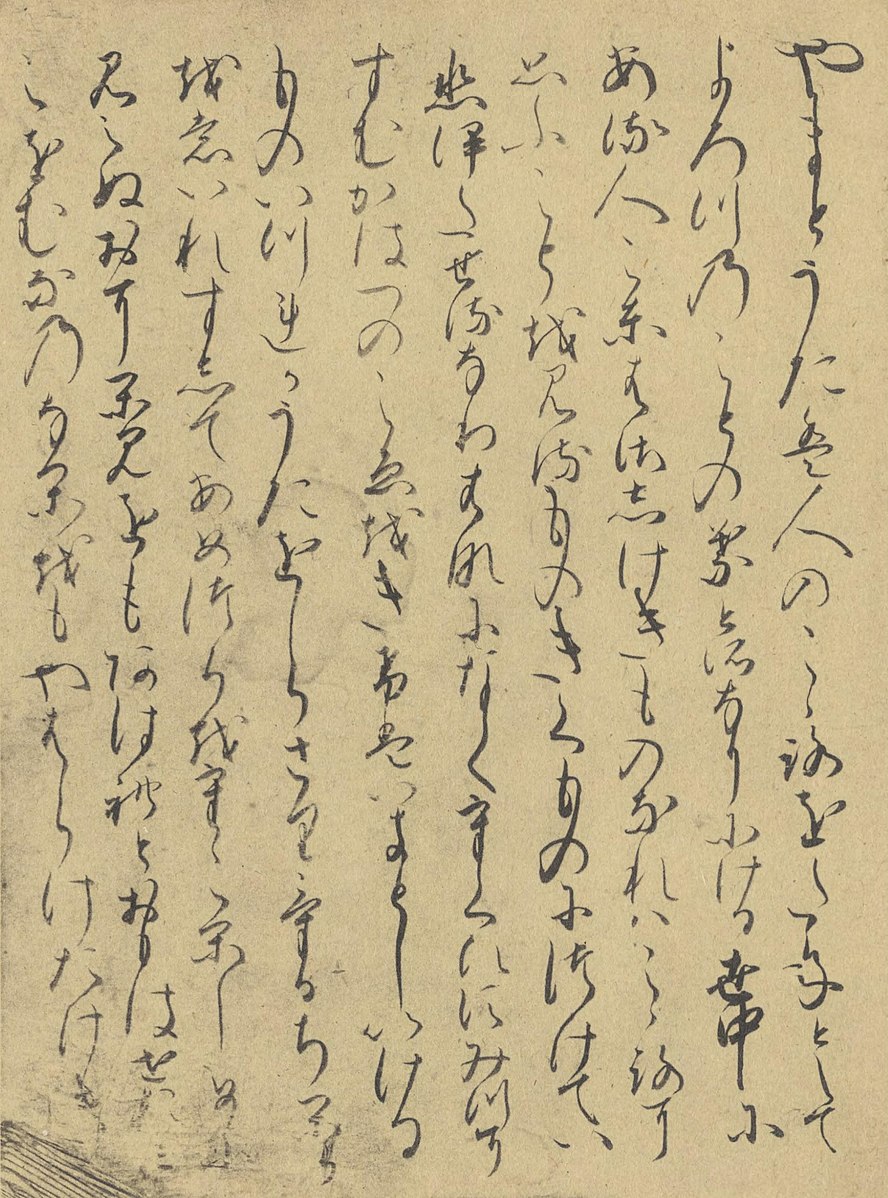 やまとうたは人のこゝろをたねとして
よろつのことの葉とそなりにける世中に
ある人ことわさしけきものなれはこゝろに
思ふことを見るものきくものにつけてい
ひいたせるなりはなになくうくひすみつに
すむかはつのこゑをきけはいきとしいける
ものいつれかうたをよまさりけるちから
をもいれすしてあめつちをうこかしめに
見えぬおに神をもあはれとおもはせた
こをむなのなかをもやはらけたけき